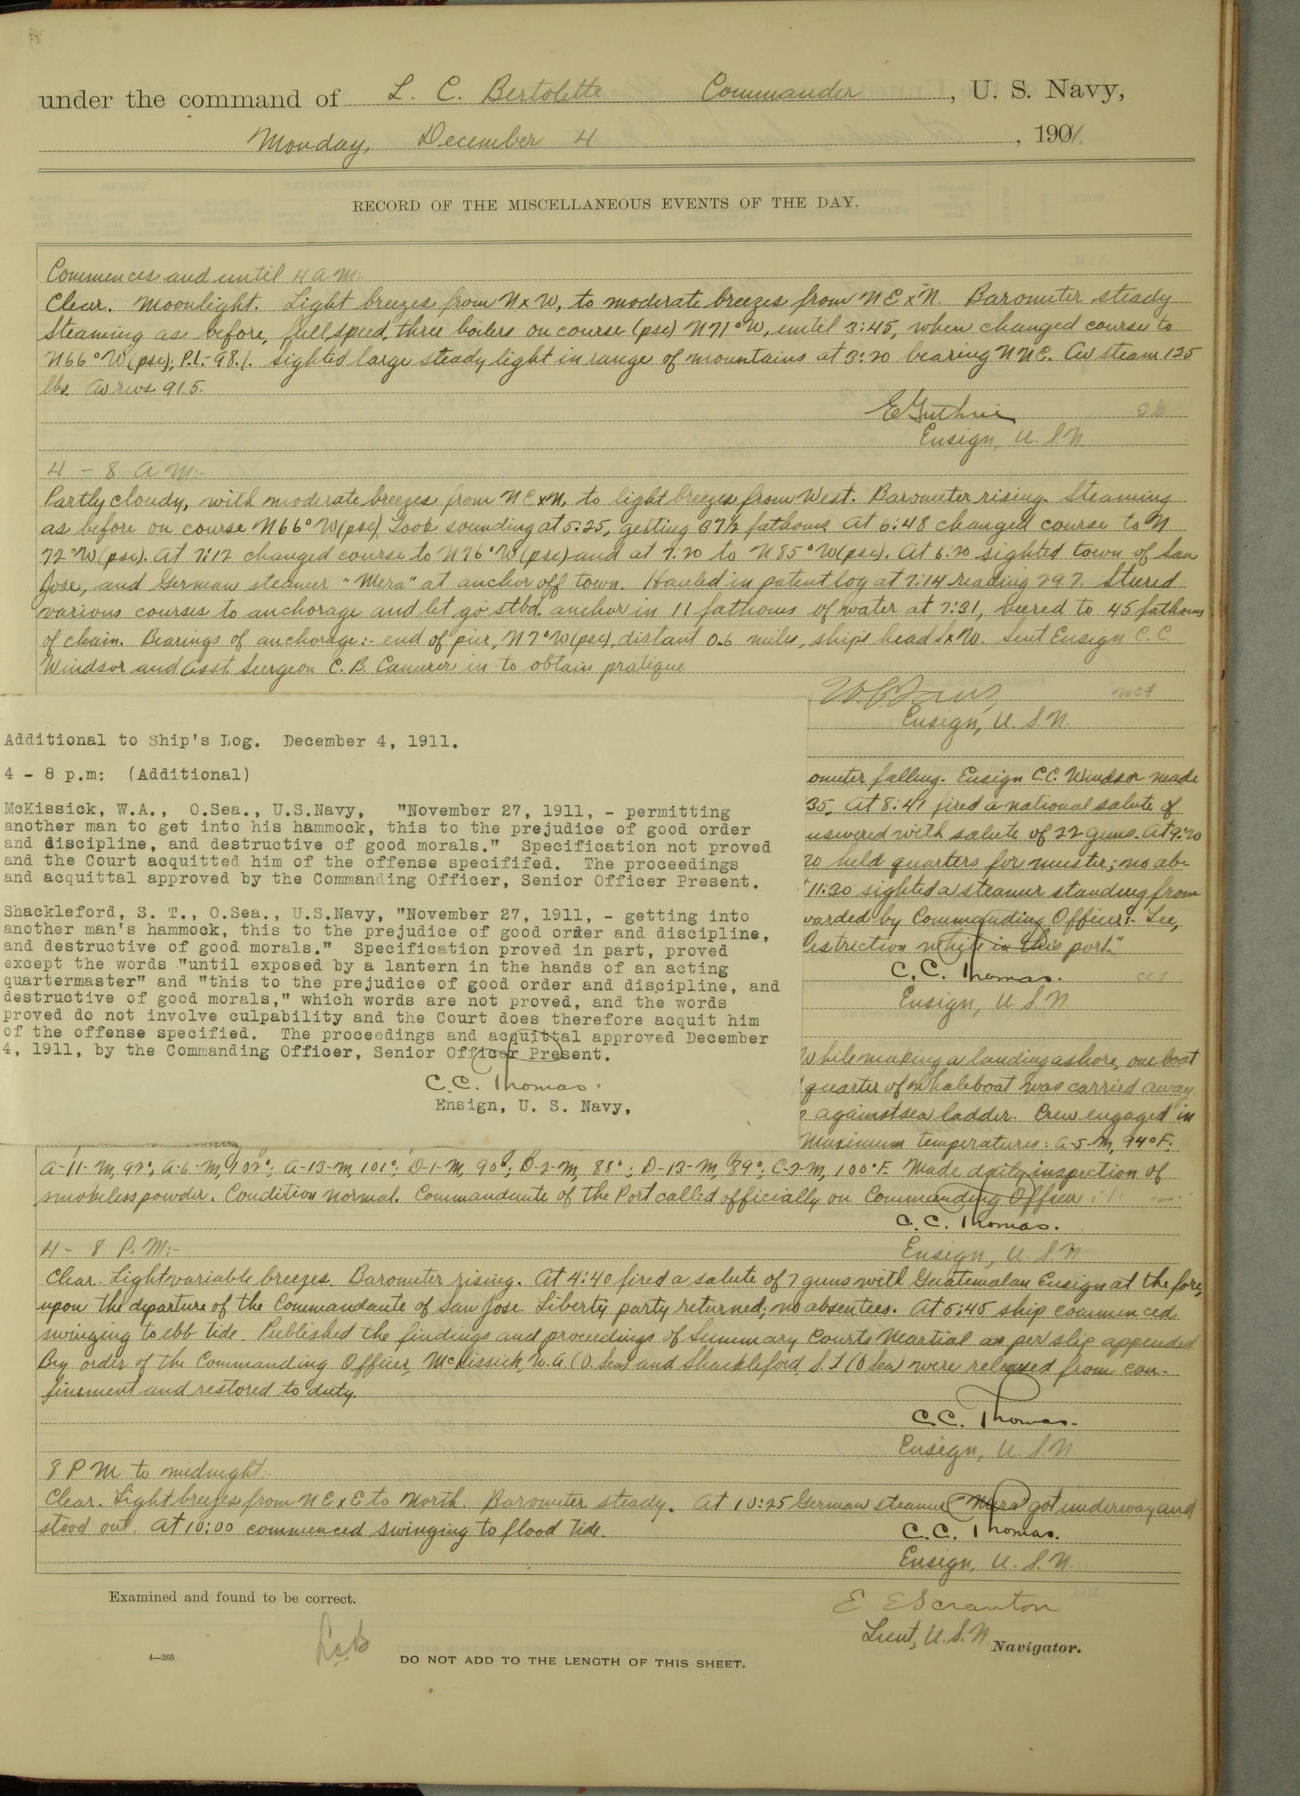 under the command of L. C. Bertolette Commander, U. S. Navy,
Monday, December 4, 1901.
RECORD OF THE MISCELLANEOUS EVENTS OF THE DAY.
Commences and until 4 A.M:-
Clear. Moonlight. Light breezes from N x W, to moderate breezes from NE x N. Barometer steady
Steaming as before, full speed, three boilers on course (psc) N71°W, until 3:45, when changed course to
N66°W (psc), P.L.-98.1. Sighted large steady light in range of mountains at 3:20 bearing NNE. Av steam 125
lbs. Av revs 91.5.
E Guthrie
Ensign, U. S. N
4 - 8 A M:-
Partly cloudy, with moderate breezes from NE x N, to light breezes from West. Barometer rising. Steaming
as before on course N66°W (psc). Took sounding at 5:25, getting 37½ fathoms. At 6:48 changed course to N
72°W (psc). At 7:12 changed course to N76°W (psc) and at 7:20 to N85°W (psc). At 6:20 sighted town of San
Jose, and German steamer "Mera" at anchor off town. Hauled in patent log at 7:14 reading 29.7. Steered
various courses to anchorage and let go stbd. anchor in 11 fathoms of water at 7:31, veered to 45 fathoms
of chain. Bearings of anchorage:- end of pier, N7°W (psc), distant 0.6 miles, ships head S x W. Sent Ensign C. C.
Windsor and Asst. Surgeon C. B. Camerer in to obtain pratique
Ensign, U. S. N.
Additional to Ship's Log. December 4, 1911.
4 - 8 p.m: (Additional)
McKissick, W.A., O.Sea., U.S.Navy, "November 27, 1911, - permitting
another man to get into his hammock, this to the prejudice of good order
and discipline, and destructive of good morals." Specification not proved
and the Court acquitted him of the offense specififed. The proceedings
and acquittal approved by the Commanding Officer, Senior Officer Present.
Shackleford, S. T., O.Sea., U.S.Navy, "November 27, 1911, - getting into
another man's hammock, this to the prejudice of good order and discipline,
and destructive of good morals." Specification proved in part, proved
except the words "until exposed by a lantern in the hands of an acting
quartermaster" and "this to the prejudice of good order and discipline, and
destructive of good morals," which words are not proved, and the words
proved do not involve culpability and the Court does therefore acquit him
of the offense specified. The proceedings and acquittal approved December
4, 1911, by the Commanding Officer, Senior Officer Present.
C. C. Thomas.
Ensign, U. S. Navy,
ometer falling. Ensign C.C. Windsor made
35. At 8:47 fired a national salute of
nswered with salute of 22 guns. At 9:20
20 held quarters for muster; no ab-
11:30 sighted a steamer standing from
warded by Commanding Officer:- Lee,
estriction while in this port."
C. C. Thomas.
Ensign, U S N
While making a landing ashore, one boat
quarter of whaleboat was carried away
against sea ladder. Crew engaged in
Maximum temperatures: A-5-M, 94°F.
A-11-M, 92°; A-6-M, 102°; A-13-M 101°; D-1-M, 90°; D-2-M, 88°; D-13-M, 89°; C-2-M, 100°F. Made daily inspection of
smokeless powder. Condition normal. Commandante of the Port called officially on Commanding Officer
C. C. Thomas.
Ensign, U. S. N
4 - 8 P. M:-
Clear. Light variable breezes. Barometer rising. At 4:40 fired a salute of 7 guns with Guatemalan Ensign at the fore,
upon the departure of the Commandante of San Jose. Liberty party returned; no absentees. At 5:45 ship commenced
swinging to ebb tide. Published the findings and proceedings of Summary Courts Martial as per slip appended
By order of the Commanding Officer, McKissick W. A. (O. Sea) and Shackleford, S. T (O Sea) were released from con-
finement and restored to duty.
C. C. Thomas.
Ensign, U. S. N
8 P M to midnight:-
Clear. Light breezes from NE x E to North. Barometer steady. At 10:25 German steamer "Mera" got underway and
stood out. At 10:00 commenced swinging to flood tide.
C. C. Thomas.
Ensign, U. S. N.
Examined and found to be correct.
E E Scranton
Lieut, U. S. N Navigator.
LCB
4—265
DO NOT ADD TO THE LENGTH OF THIS SHEET.